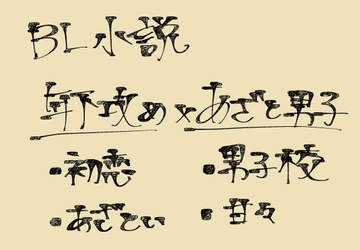 BL小説
軒下攻め×あざと男子
・初恋 ・男子校
・あざとい ・甘々